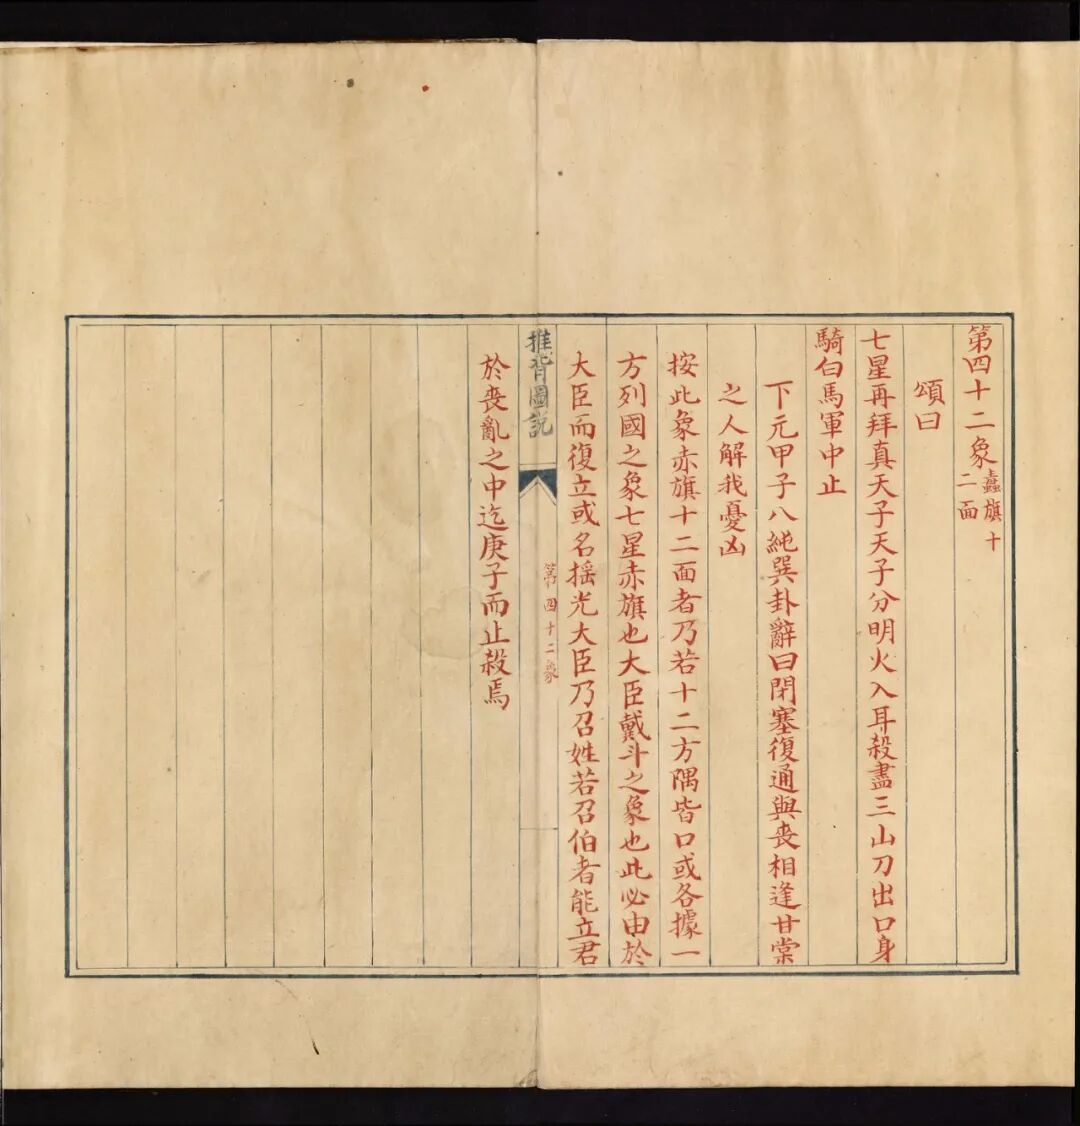 第四十二象 纛旗十
二面
頌曰
七星再拜真天子天子分明火入耳殺盡三山刀出口身
騎白馬軍中止
下元甲子八純巽卦辭曰閉塞復通與喪相逢甘棠
之人解我憂凶
按此象赤旗十二面者乃若十二方隅皆口或各據一
方列國之象七星赤旗也大臣戴斗之象也此必由於
大臣而復立或名摇光大臣乃召姓若召伯者能立君
推背圖説
第四十二象
於喪亂之中迄庚子而止殺焉